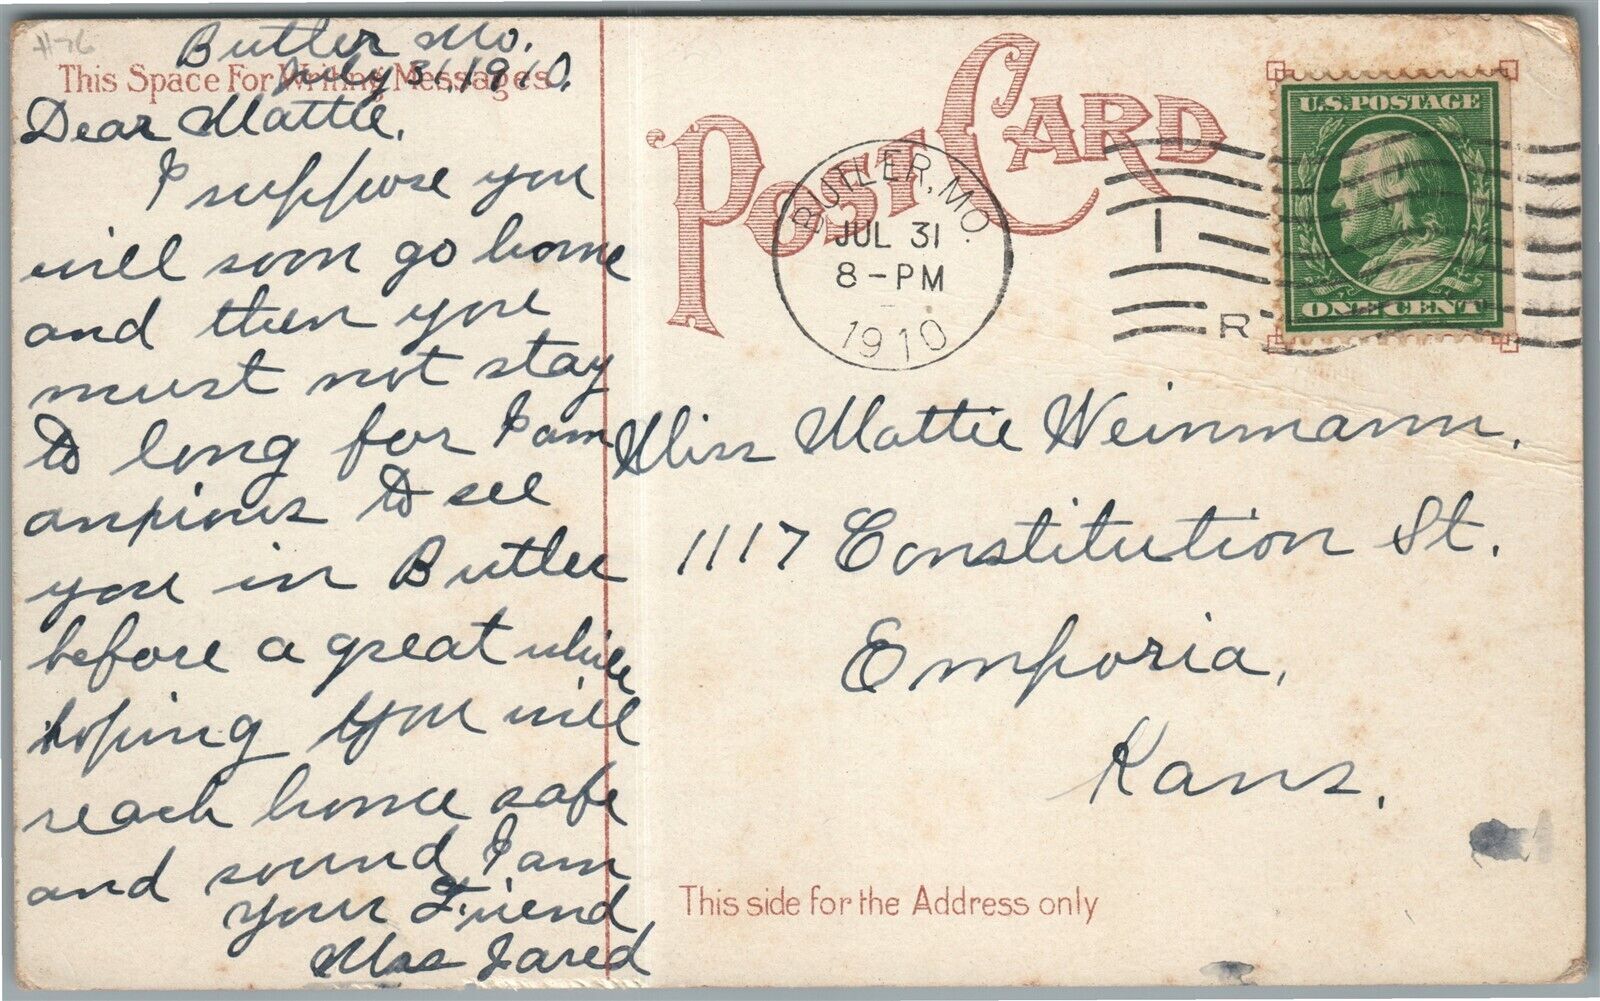 #76
Butler Mo.
July 31, 1910.
This Space For Writing Messages
Dear Mattie,
I suppose you
will soon go home
and then you
must not stay
to long for I am
anxious to see
you in Butler
before a great while
hoping you will
reach home safe
and sound, I am
your Friend,
Mrs Jared
POST CARD
BUTLER, MO.
JUL 31
8-PM
1910
1
R
U.S. POSTAGE
ONE CENT
Miss Mattie Weinmann.
1117 Constitution St.
Emporia,
Kans.
This side for the Address only